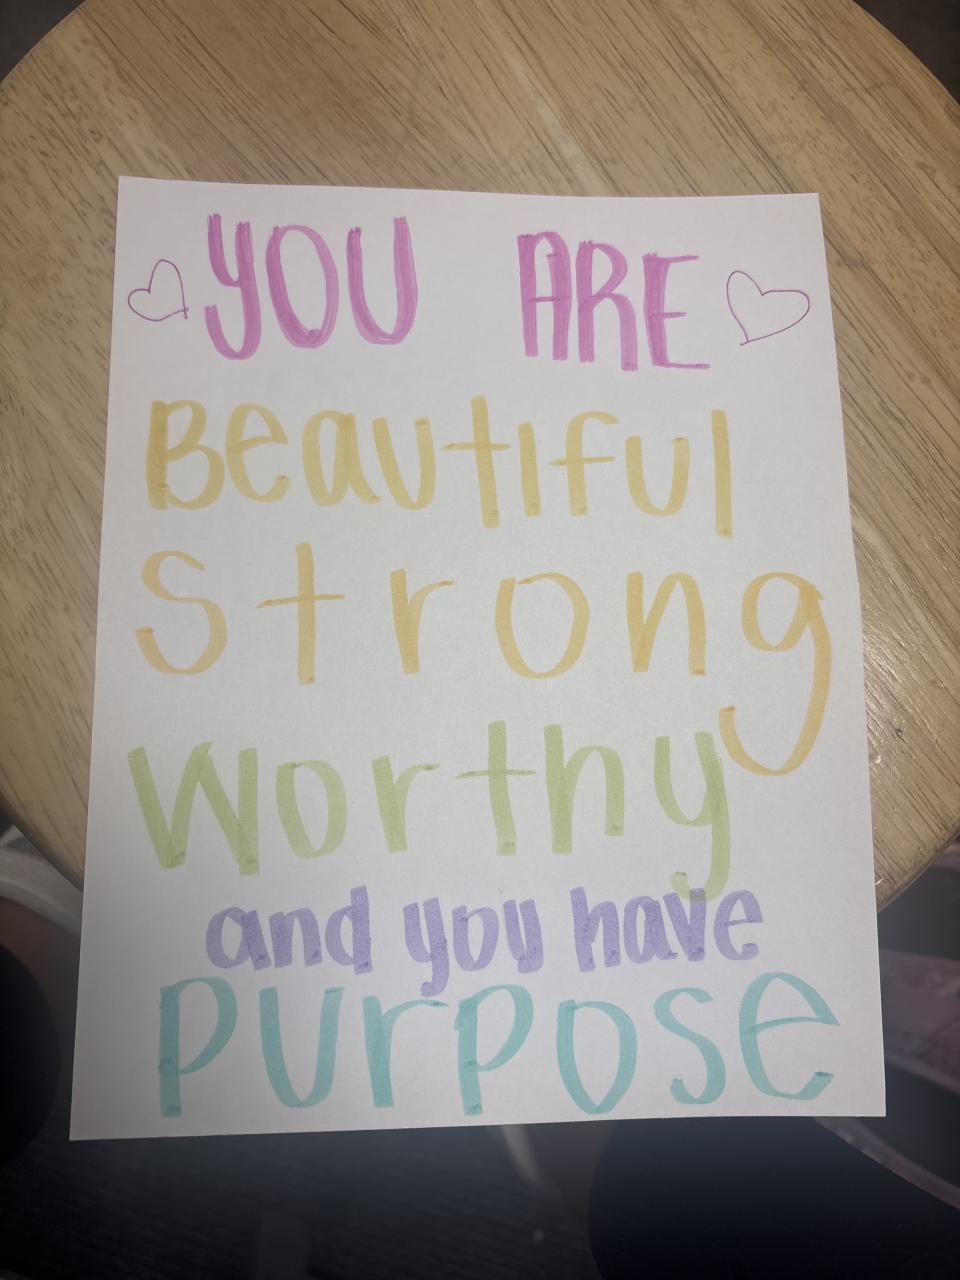 YOU ARE
Beautiful
Strong
Worthy
and you have
Purpose